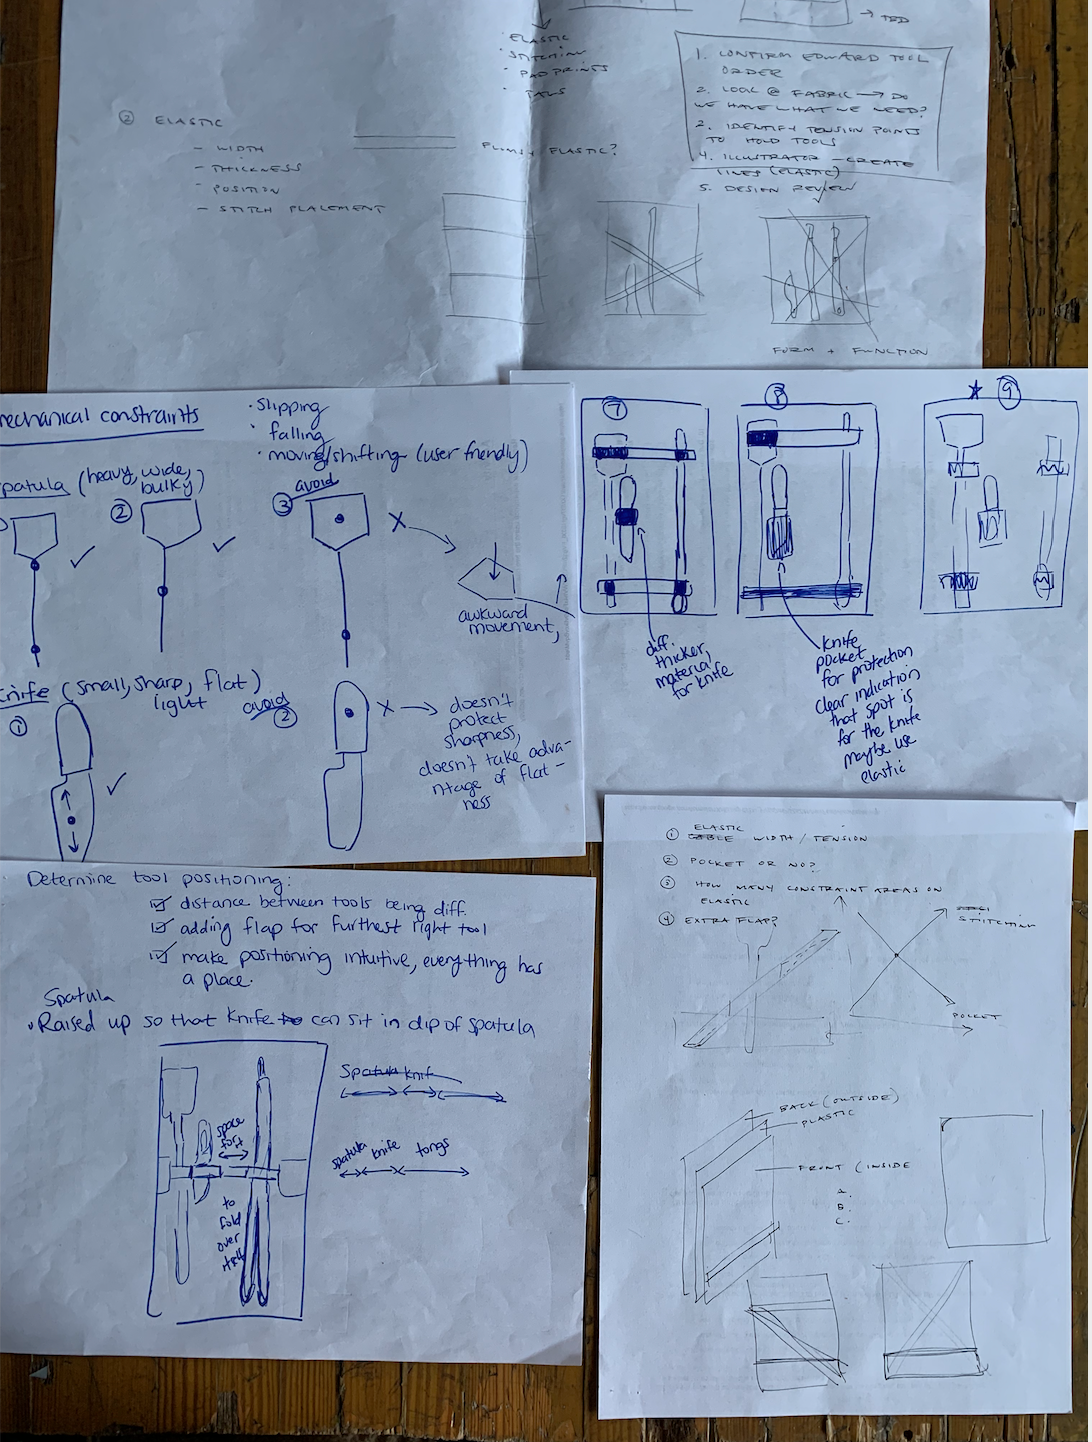 → TBD
ELASTIC
· STITCHING
· PAD PRINTS
· TABS
1. CONFIRM EDWARD TOOL
ORDER
2. LOOK @ FABRIC → DO
WE HAVE WHAT WE NEED?
2. IDENTIFY TENSION POINTS
TO HOLD TOOLS
4. ILLUSTRATOR — CREATE
LINES (ELASTIC)
5. DESIGN REVIEW
② ELASTIC
- WIDTH
- THICKNESS
- POSITION
- STITCH PLALEMENT
ELASTIC?
FORM + FUNCTION
mechanical constraints
· slipping
· falling
· moving/shifting (user friendly)
spatula (heavy, wide,
bulky)
②
③ avoid
X
awkward
movement,
knife (small, sharp, flat)
light
①
avoid
②
X → doesn't
protect
sharpness,
doesn't take adva-
ntage of flat-
ness
⑦
⑧
★ ⑨
diff.
thicker,
material
for knife
knife
pocket
for protection
clear indication
that spot is
for the knife
maybe use
elastic
Determine tool positioning:
☑ distance between tools being diff.
☑ adding flap for furthest right tool
☑ make positioning intuitive, everything has
a place.
Spatula
· Raised up so that knife can sit in dip of spatula
space
for t
to
fold
over
itself
Spatula knif
spatula knife tongs
① ELASTIC
WIDTH / TENSION
② POCKET OR NO?
③ HOW MANY CONSTRAINT AREAS ON
ELASTIC
④ EXTRA FLAP?
STITCHING
POCKET
BACK (OUTSIDE)
PLASTIC
FRONT (INSIDE
A.
B.
C.